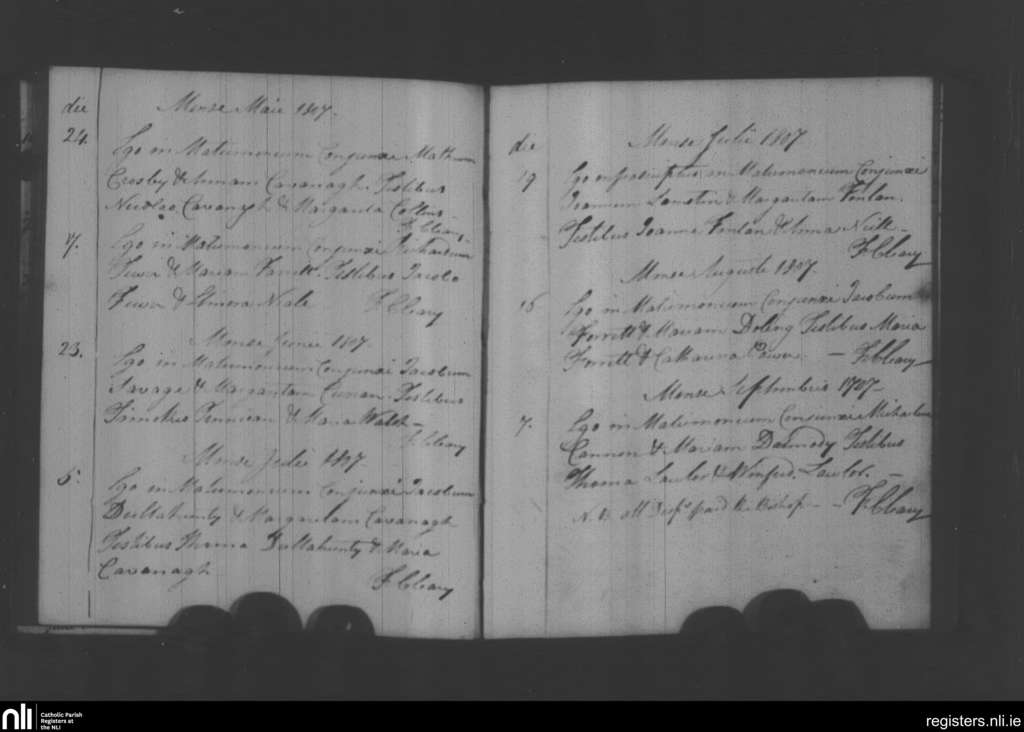 die
Mense Maii 1807.
24.
Ego in Matrimonium Conjunxi Mathæum
Crosby & Annam Cavanagh. Testibus
Nicolao Cavanagh & Margarita Collins.
F Cleary
Ego in Matrimonium Conjunxi Richardum
& Mariam Testibus Jacobo
& Neale F Cleary
Mense Junii 1807
23.
Ego in Matrimonium Conjunxi Jacobum
Savage & Margaritam Testibus
& Maria Walsh
F Cleary
Mense Julii 1807
5.
Ego in Matrimonium Conjunxi Jacobum
Dullahunty & Margaritam Cavanagh
Testibus Thoma Dullahunty & Maria
Cavanagh
F Cleary
die
Mense Julii 1807
19
Ego in Matrimonium Conjunxi
Joannem & Margaritam Fonlan.
Testibus Joanne Fonlan & Anna
F Cleary
Mense Augusti 1807.
Ego in Matrimonium Conjunxi Jacobum
Forritt & Mariam Testibus Maria
Forritt & Catharina Power. — F Cleary
Mense Septembris 1707
7.
Ego in Matrimonium Conjunxi Michaelem
Cannon & Mariam Darmody Testibus
Thoma Lawlor & Winfrid. Lawlor. —
N.B. all paid the Bishop — F Cleary
nli
Catholic Parish
Registers at
the NLI
registers.nli.ie